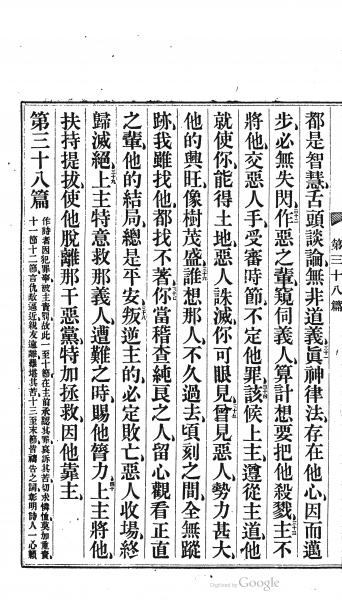 都是智慧舌頭談論無非道義眞神律法存在他心因而邁
步必無失閃作惡之輩窺伺義人算計想要把他殺戮主不
將他交惡人手受審時節不定他罪該候上主遵從主道他
就使你能得土地惡人誅滅你可眼見曾見惡人勢力甚大
他的興旺像樹茂盛誰想那人不久過去頃刻之間全無蹤
跡我雖找他都找不著你當稽查純良之人留心觀看正直
之輩他的結局總是平安叛逆主的必定敗亡惡人收場終
歸滅絕上主特意救那義人遭難之時賜他膂力上主將他
扶持提拔使他脫離那干惡黨特加拯救因他靠主
第三十八篇
作詩者因犯罪孽被主責罰故此一至十節在主前承認其罪哀訴其苦切求憐恤莫加重責
十一節十二節言仇敵逼近親友遠離難堪其苦十三至末節皆禱告之詞彰明詩人一心賴
第三十八篇
Digitized by Google